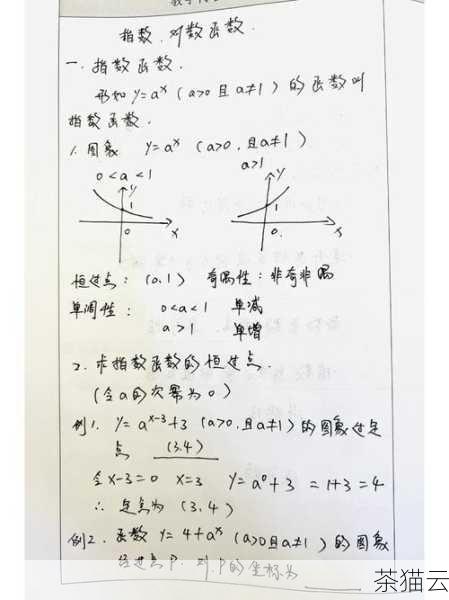 指数、对数函数.
一. 指数函数.
形如 y=aˣ (a>0 且 a≠1) 的函数叫
指数函数.
1. 图象 y=aˣ (a>0, 且a≠1)
0<a<1 a>1
y y
1 1
0 x 0. x
恒过点: (0,1) 奇偶性: 非奇非偶
单调性: 0<a<1 单减
a>1 单增
2. 求指数函数的恒过点.
(令a的次幂为0)
例1. y=aˣ⁻³+3 (a>0,且a≠1)的图象过定
点 (3,4)
令x-3=0 x=3 y=a⁰+3 =1+3=4
∴ 定点为 (3,4)
例2. 函数 y=4+aˣ (a>0且a≠1) 的图象
经过点P. 则.P的坐标为
茶猫云